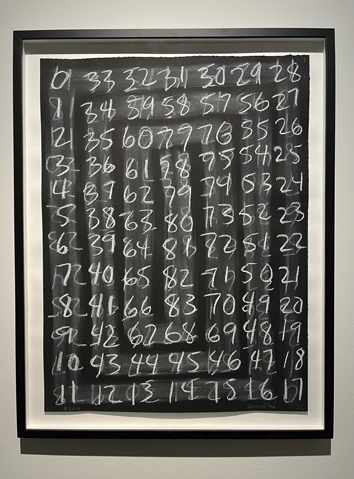 0 33 32 31 30 29 28
1 34 59 58 57 56 27
2 35 60 77 76 55 26
3 36 61 78 75 54 25
4 37 62 79 74 53 24
5 38 63 80 73 52 23
6 39 64 81 72 51 22
7 40 65 82 71 50 21
8 41 66 83 70 49 20
9 42 67 68 69 48 19
10 43 44 45 46 47 18
11 12 13 14 15 16 17